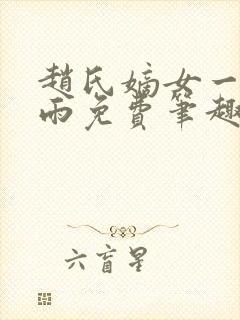 趙氏嫡女一
雨免費筆趣
六盲星